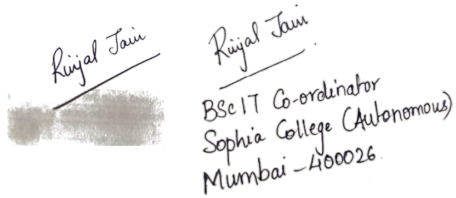 Rinjal Jain
Rinjal Jain
BSc IT Co-ordinator
Sophia College (Autonomous)
Mumbai - 400026.